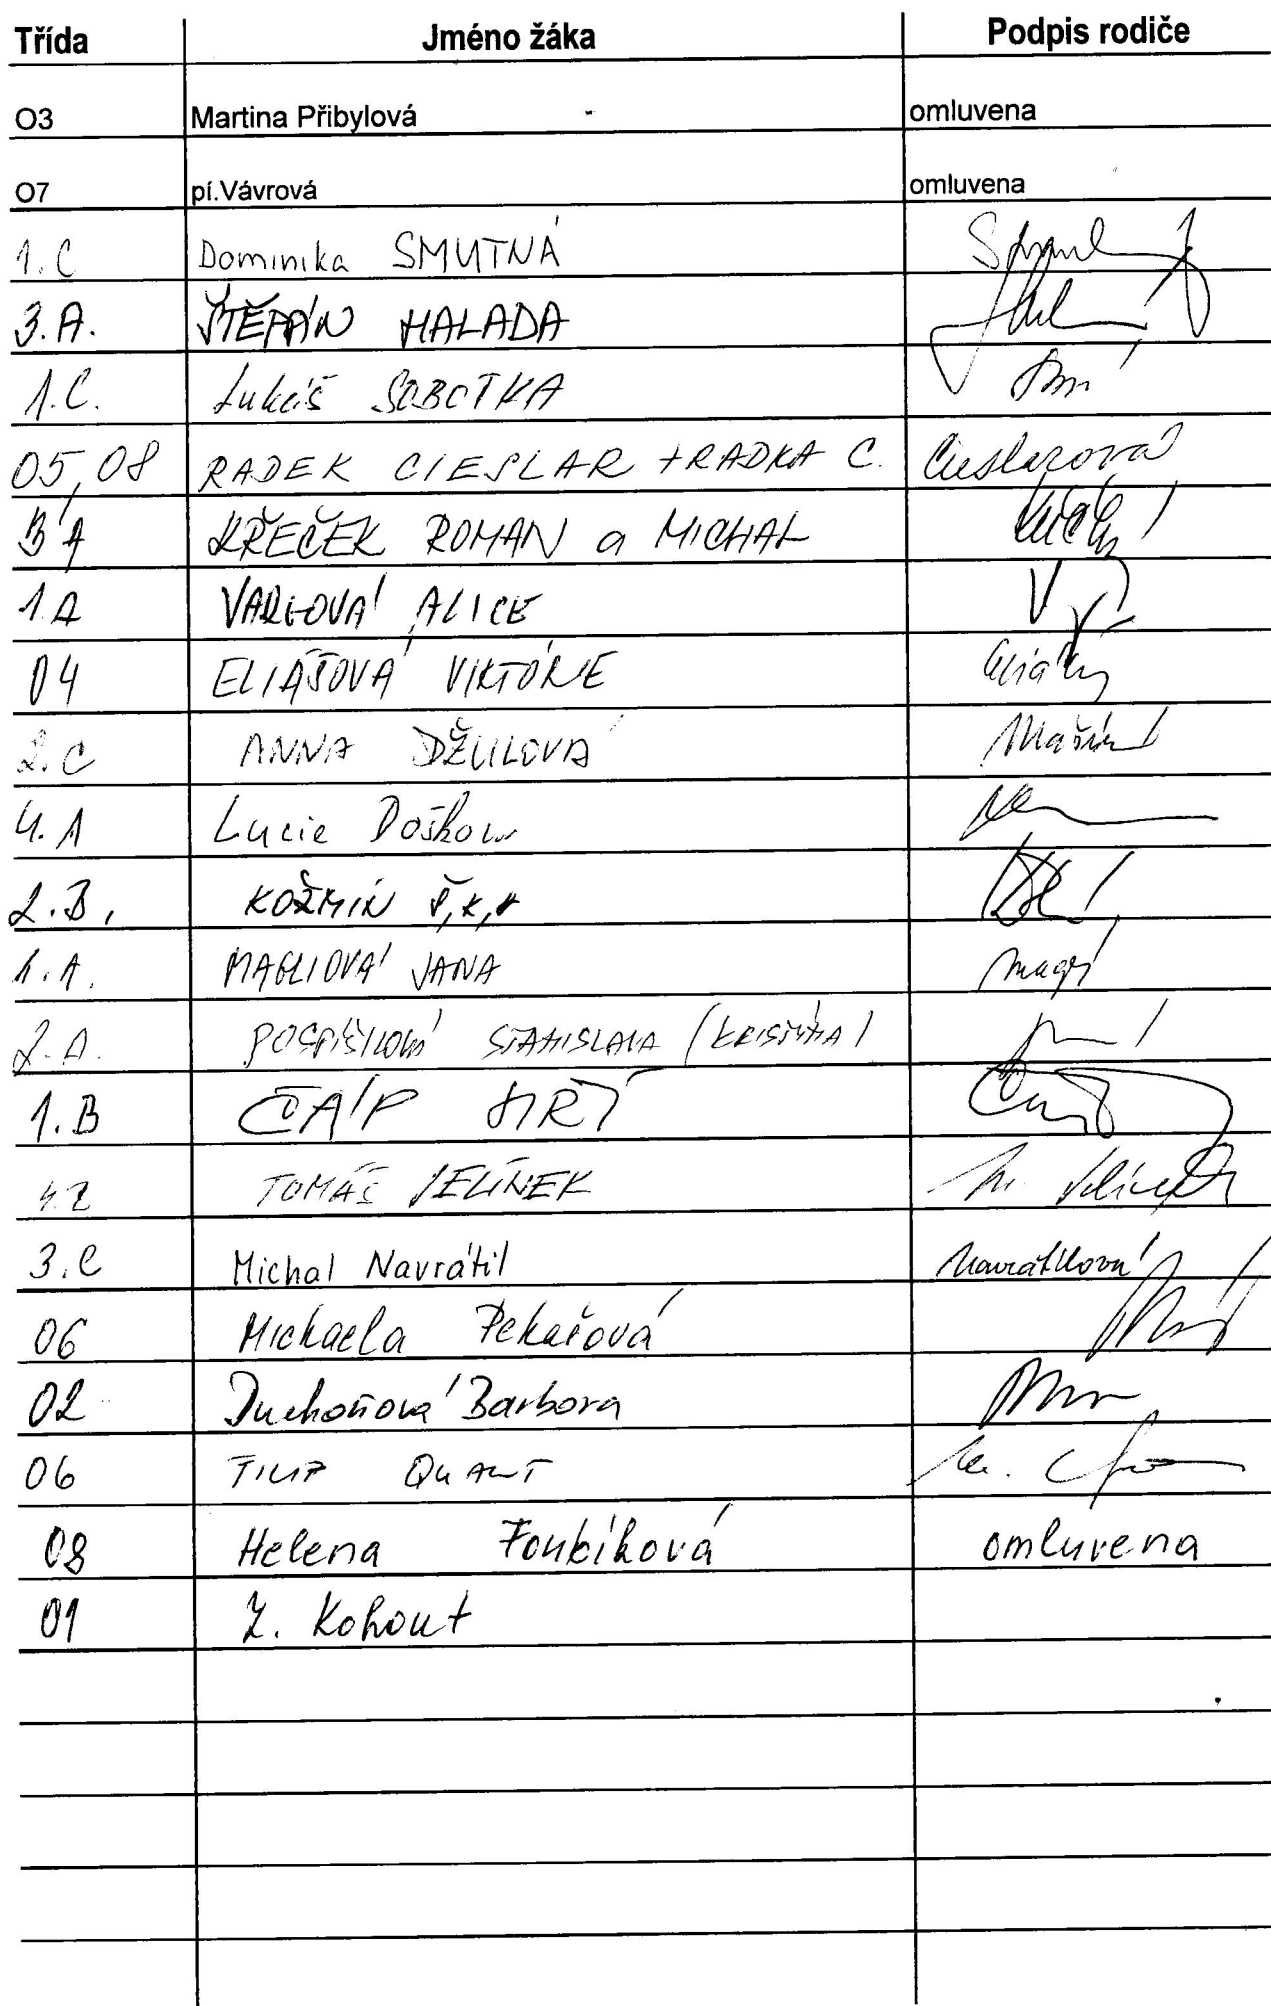 Třída Jméno žáka Podpis rodiče
O3 Martina Přibylová omluvena
O7 pí.Vávrová omluvena
1.C Dominika SMUTNÁ
3.A. ŠTĚPÁN HALADA
1.C. Lukáš SOBOTKA
05,08 RADEK CIESLAR +RADKA C. Cieslarová
KŘEČEK ROMAN a MICHAL
1.A ALICE
04 ELIÁŠOVÁ VIKTORIE
2.C ANNA DŽULOVÁ
4.A Lucie
2.B, KOŽMÍN
1.A. MAGLIOVÁ JANA
2.A. POSPÍŠILOVÁ STANISLAVA
1.B ČÁP JIŘÍ
TOMÁŠ JELÍNEK
3.C Michal Navrátil Navrátilová
06 Michaela Pekařová
02 Duchoňová Barbora
06 FILIP QUANT
08 Helena omluvena
01 Z. Kohout